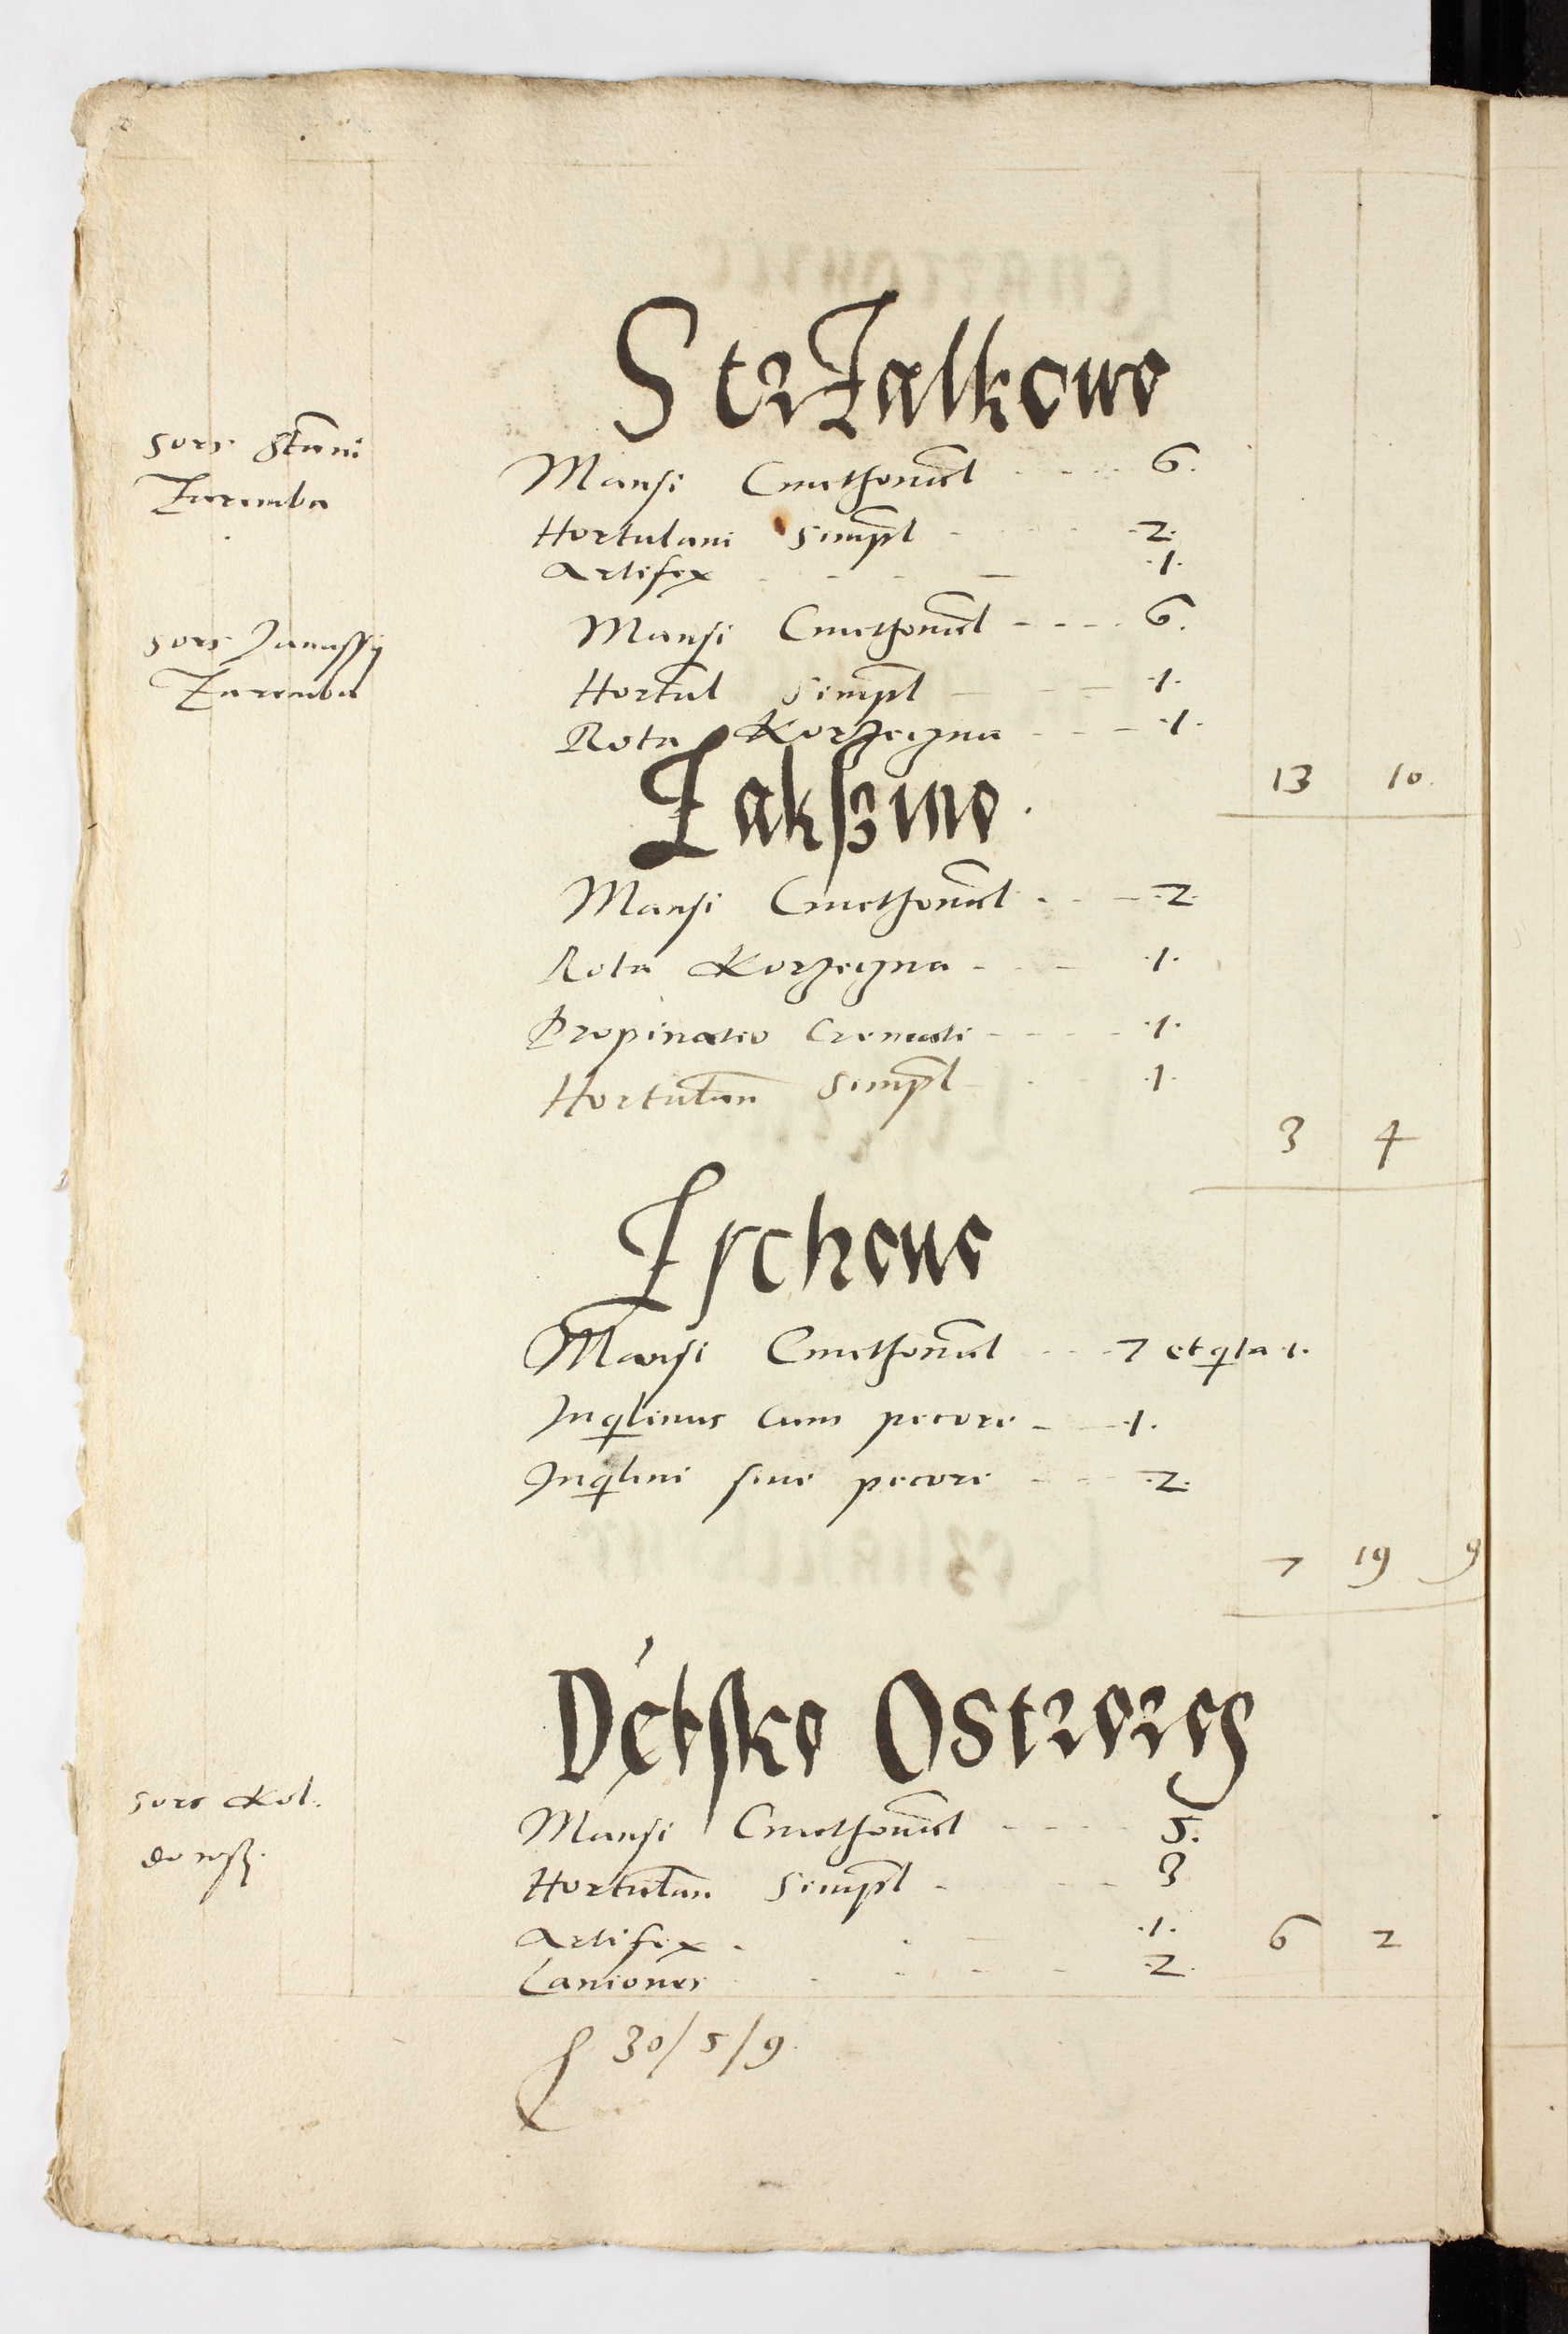 Strzalkowo
sors Stani
Zaremba
Mansi Cmethonal 6.
Hortulani simpl 2.
Artifex 1.
sors Janussy
Zaremba
Mansi Cmethonal 6.
Hortul simpl 1.
Rota Korzeczna 1.
13 10.
Zakszino.
Mansi Cmethonal 2.
Rota Korzeczna 1.
Propinatio Cremati 1.
Hortulan simpl 1.
3 4
Mansi Cmethonal 7 et qrta 1.
Inqlinus cum pecore 1.
Inqlini sine pecore 2.
7 19 9
Ostrorog
sors Kol.
Mansi Cmethonal 5.
Hortulan simpl 3
Artifex 1.
6 2
Laniones 2.
30/5/9